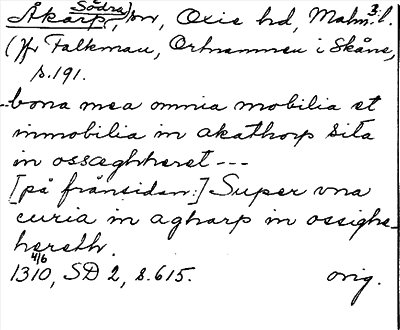 Åkarp, Södra), sn, Oxie hd, Malm. l. 3.
(Jfr Falkman, Ortnamnen i Skåne,
s. 191.
--bona mea omnia mobilia et
inmobilia in akathorp sita
in ossæghheret ---
[på frånsidan:] Super vna
curia in agharp in ossighe-
hereth.
1310, 4/6 SD 2, s. 615. orig.